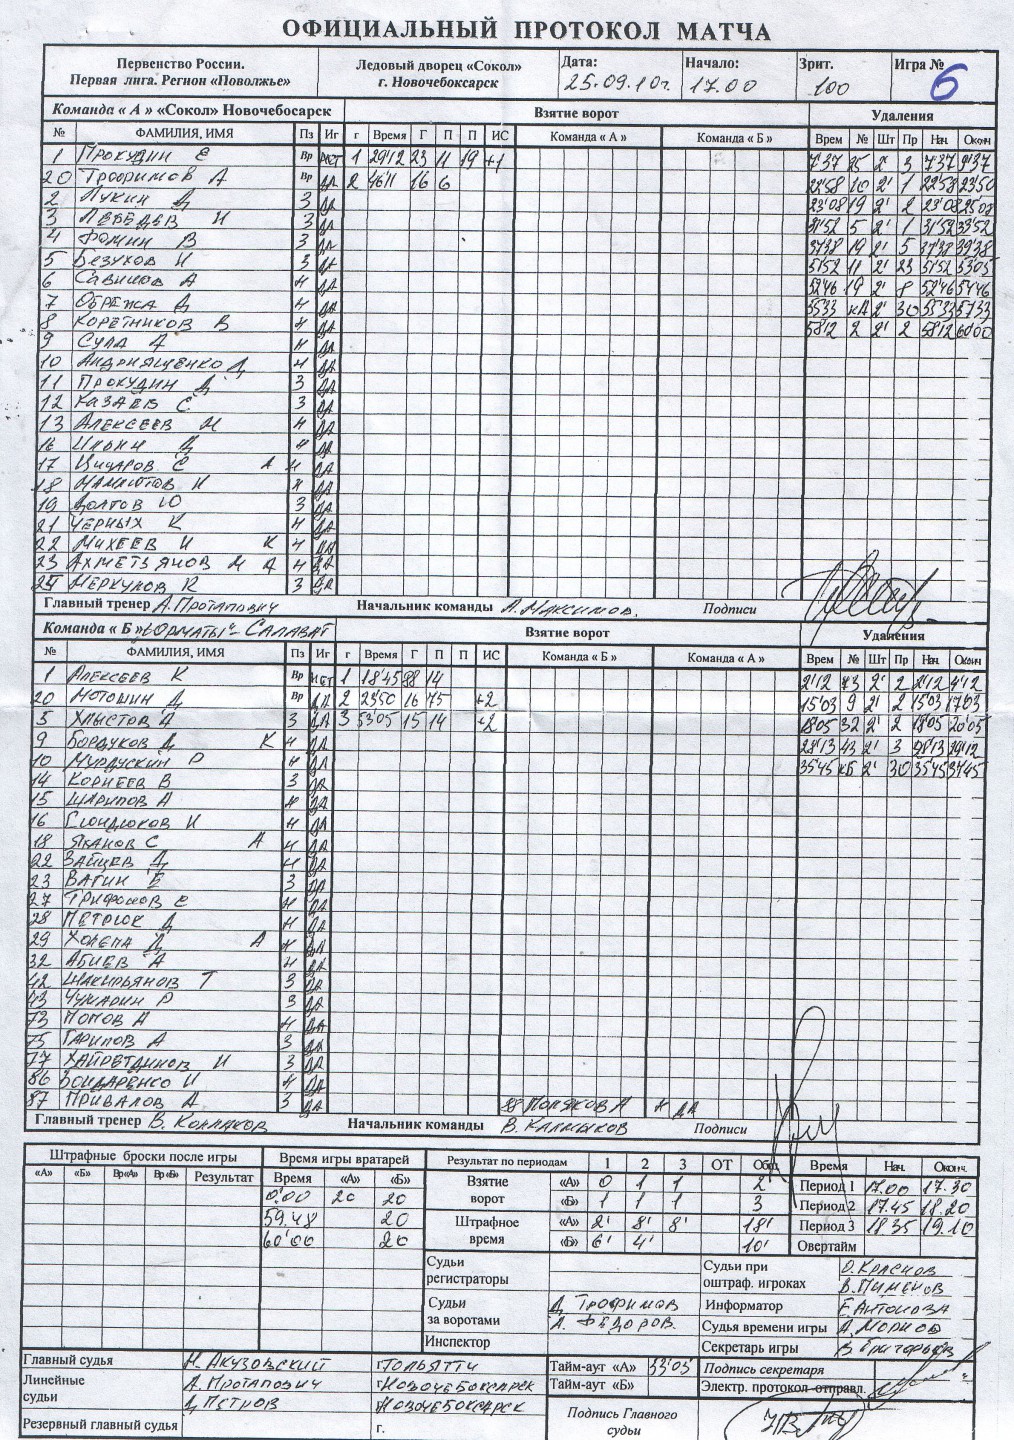 ОФИЦИАЛЬНЫЙ ПРОТОКОЛ МАТЧА
Первенство России. Первая лига. Регион «Поволжье»
Ледовый дворец «Сокол» г. Новочебоксарск
Дата: 25.09.10г.
Начало: 17.00
Зрит. 100
Игра № 6
Команда « А » «Сокол» Новочебосарск
Взятие ворот
Удаления
№ ФАМИЛИЯ, ИМЯ Пз Иг г Время Г П П ИС Команда « А » Команда « Б » Врем № Шт Пр Нач Оконч
1 Прокудин Е Вр 1 29'12 23 11 19 +1 7'37 25 2 3 7'37 9'37
20 Трофимов А Вр да 2 46'11 16 6 22'58 10 2' 1 22'58 23'50
2 Лукин Д З да 23'08 19 2' 2 23'08 25'08
3 Лебедев И З да 31'52 5 2' 1 31'52 33'52
4 Фомин В З да 37'38 19 2' 5 37'38 39'38
5 Безухов И З да 51'52 11 2' 23 51'52 53'05
6 Савинов А Н да 52'46 19 2' 8 52'46 54'46
7 Обрежа Д Н да 55'33 кА 2' 30 55'33 57'33
8 Коретников В Н да 58'12 2 2' 2 58'12 60'00
9 Сула А Н да
10 Андрианценко Д Н да
11 Прокудин Д З да
12 Казаев С З да
13 Алексеев И Н да
16 Ильин Д Н да
17 Цицаров С А Н да
18 Мамлютов И Н да
19 Долгов Ю З да
21 Черных К Н да
22 Михеев И К Н да
23 Ахметзянов М А Н да
25 Меркулов К З да
Главный тренер А.Протапович Начальник команды А.Максимов. Подписи
Команда « Б » "Юрматы" - Салават
Взятие ворот
Удаления
№ ФАМИЛИЯ, ИМЯ Пз Иг г Время Г П П ИС Команда « Б » Команда « А » Врем № Шт Пр Нач Оконч
1 Алексеев К Вр нет 1 18'45 88 14 2'12 73 2' 2 2'12 4'12
20 Мотошин Д Вр да 2 23'50 16 75 +2 15'03 9 2' 2 15'03 17'03
5 Хлыстов А З да 3 53'05 15 14 +2 18'05 32 2' 2 18'05 20'05
9 Бордуков Д К Н да 28'13 43 2' 3 28'13 29'12
10 Мурдускин Р Н да 35'45 кБ 2' 30 35'45 37'45
14 Корнеев В З да
15 Шарипов А Н да
16 Сюндюков И Н да
18 Яханов С А Н да
22 Зайцев Д Н да
23 Вагин Е З да
27 Трифонов С Н да
28 Петрюк Д Н да
29 Холепа Д А Н да
32 Абиев А Н да
42 Шакирьянов Т З да
43 Чумарин Р З да
73 Попов А Н да
75 Гарипов А З да
77 Хайретдинов И З да
86 Бондаренко И Н да
87 Привалов А З да 88 Поляков А Н да
Главный тренер В. Колпаков Начальник команды В. Калмыков Подписи
Штрафные броски после игры
«А» «Б» Вр«А» Вр«Б» Результат
Время игры вратарей
Время «А» «Б»
0'00 20 20
59.48 20
60'00 20
Результат по периодам 1 2 3 ОТ Общ
Взятие ворот «А» 0 1 1 2
«Б» 1 1 1 3
Штрафное время «А» 2' 8' 8' 18'
«Б» 6' 4' 10'
Время Нач. Оконч.
Период 1 17.00 17.30
Период 2 17.45 18.20
Период 3 18.35 19.10
Овертайм
Судьи регистраторы
Судьи за воротами Д Трофимов А. Фёдоров.
Инспектор
Судьи при оштраф. игроках О.Краснов В.Пименов
Информатор Е Антонова
Судья времени игры
Секретарь игры В Григорьев
Главный судья Н. Акузовский г.Тольятти
Линейные судьи А.Протапович г.Новочебоксарск
Д Петров г.Новочебоксарск
Резервный главный судья г.
Тайм-аут «А» 53'05
Тайм-аут «Б»
Подпись секретаря
Электр. протокол отправл.
Подпись Главного судьи